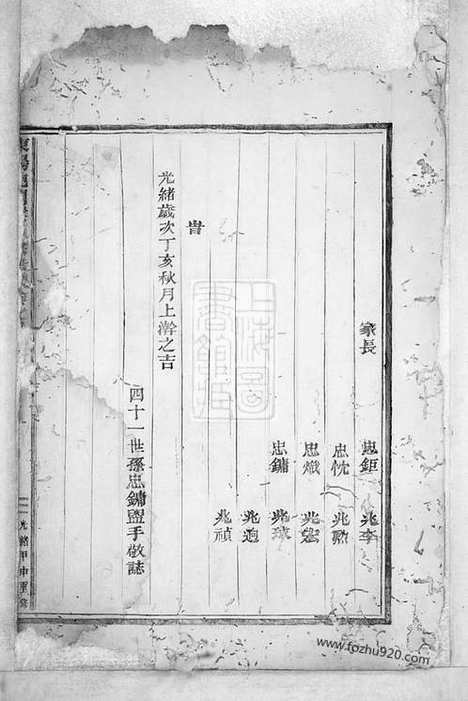 家長
忠鉅 兆李
忠忱 兆勲
忠熾
忠鏞 兆球
兆迥
兆禎
旹
光緒歲次丁亥秋月上澣之吉
四十一世孫忠鏞盥手敬誌
光緒甲申重
上海圖書館藏
www.fozhu920.com